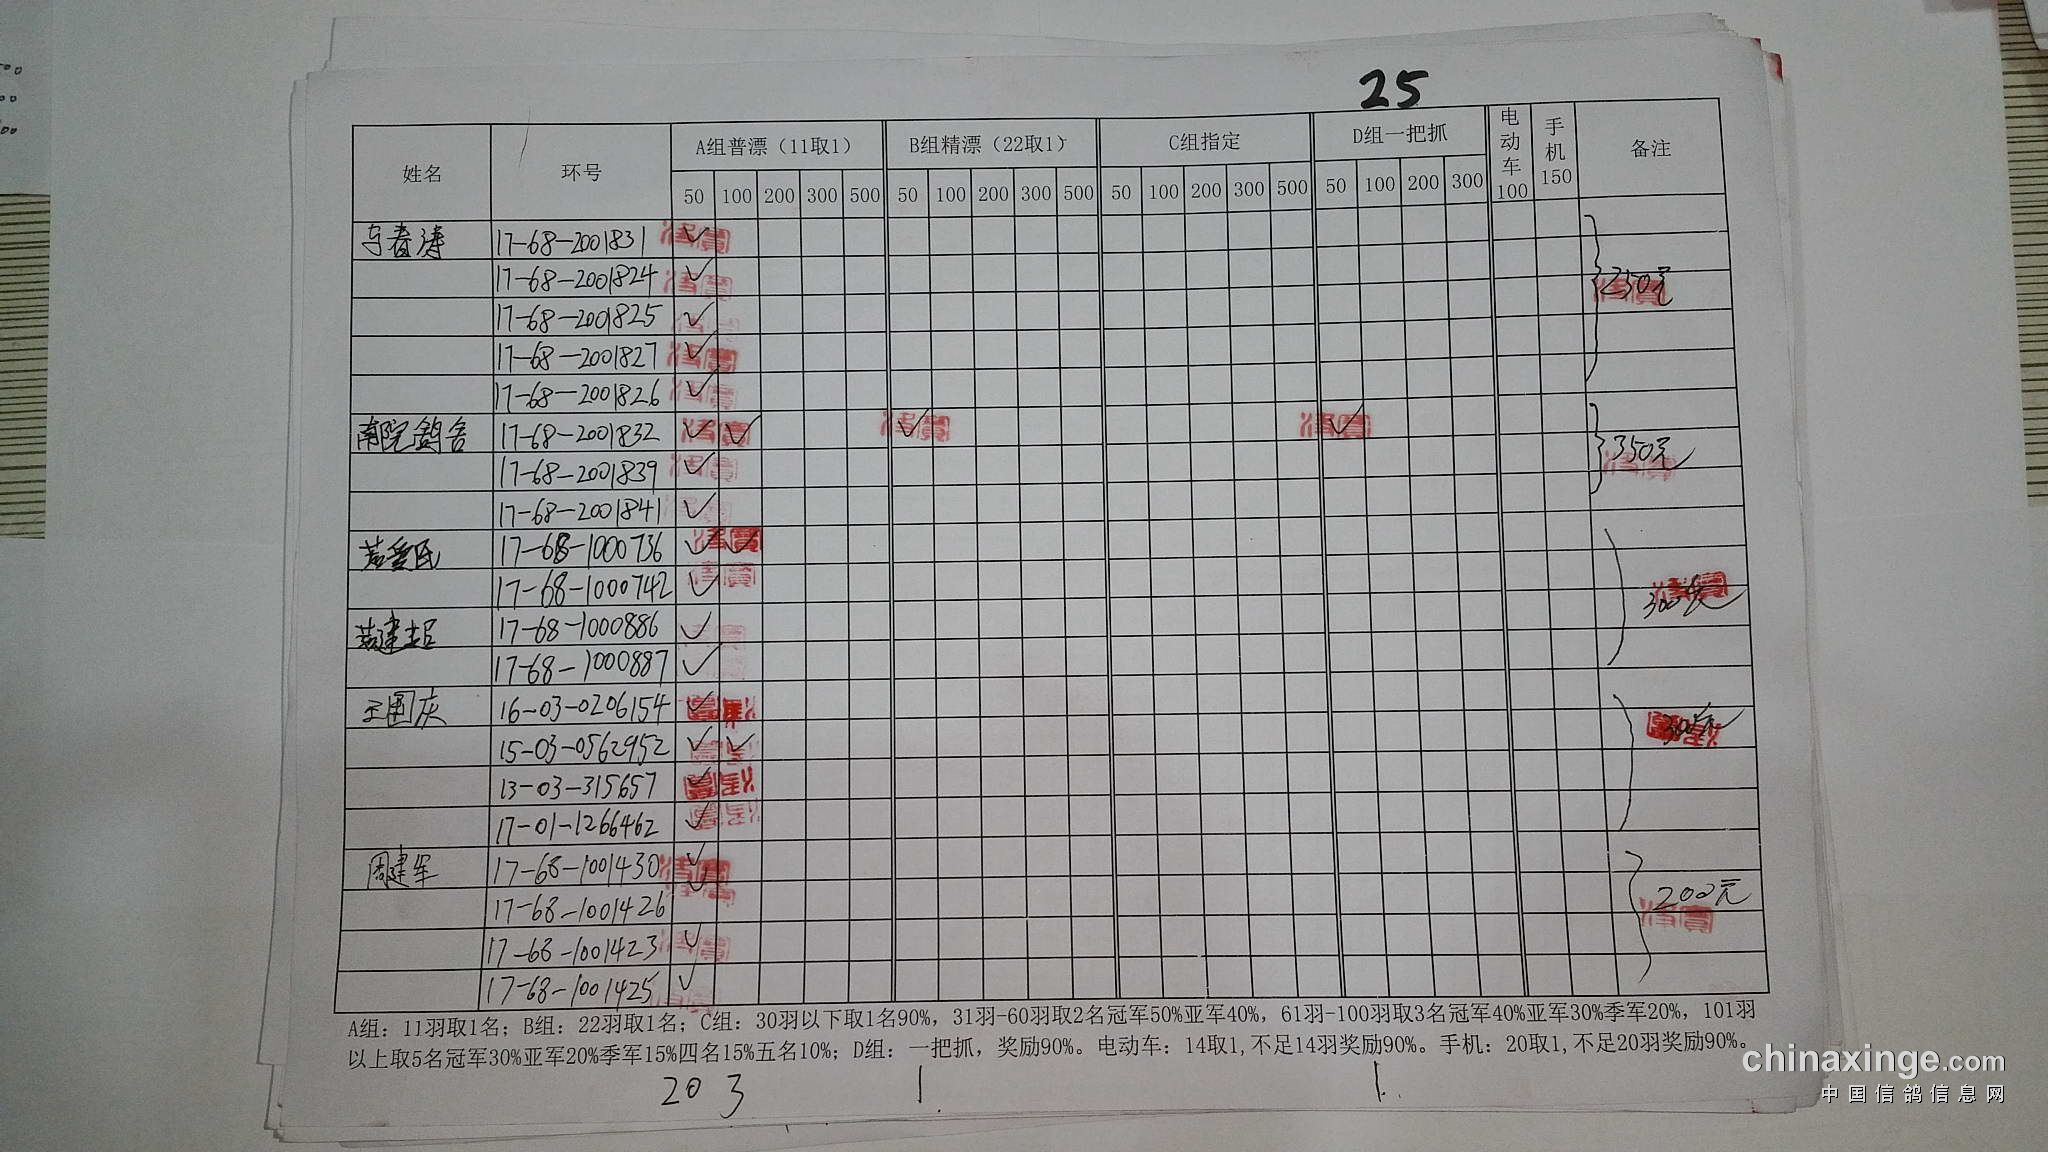 25
姓名 环号 A组普漂（11取1） B组精漂（22取1） C组指定 D组一把抓 电动车100 手机150 备注
50 100 200 300 500 50 100 200 300 500 50 100 200 300 500 50 100 200 300
春涛 17-68-2001831 ✓
17-68-2001824 ✓ 250元
17-68-2001825 ✓
17-68-2001827 ✓
17-68-2001826 ✓
南院鸽舍 17-68-2001832 ✓ ✓ ✓ ✓
17-68-2001839 ✓ 350元
17-68-2001841 ✓
爱民 17-68-1000736 ✓ ✓
17-68-1000742 ✓ 300元
17-68-1000886 ✓
17-68-1000887 ✓
王国灰 16-03-0206154 ✓
15-03-0562952 ✓ ✓
13-03-315657 ✓
17-01-1266462 ✓
周建军 17-68-1001430 ✓
17-68-1001426 ✓ 200元
17-68-1001423 ✓
17-68-1001425 ✓
A组：11羽取1名；B组：22羽取1名；C组：30羽以下取1名90%，31羽-60羽取2名冠军50%亚军40%，61羽-100羽取3名冠军40%亚军30%季军20%，101羽
以上取5名冠军30%亚军20%季军15%四名15%五名10%；D组：一把抓，奖励90%。电动车：14取1,不足14羽奖励90%。手机：20取1,不足20羽奖励90%。
20 3 1 1
chinaxinge.com
中国信鸽信息网